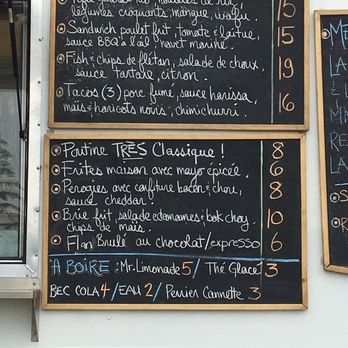 légumes croquants, mangue, wafu. 15
Sandwich poulet frit, tomate & laitue,
sauce BBQ à l'ail 15
Fish & chips de flétan, salade de choux,
sauce tartare, citron. 19
Tacos (3) porc fumé, sauce harissa,
maïs & haricots noirs, chimichurri. 16
Poutine TRÈS Classique! 8
Frites maison avec mayo épicée. 6
Perogies avec confiture bacon & chou,
sauce cheddar. 8
Brie frit, salade edamames & bok choy
chips de maïs. 10
Flan Brulé au chocolat/expresso 6
À BOIRE : Mr. Limonade 5/ Thé Glacé 3
BEC COLA 4/ EAU 2/ Perrier Cannette 3